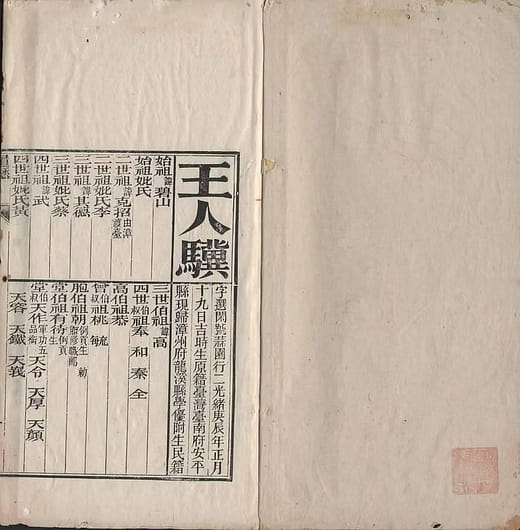 王人驥
字選閒號蒜園行二光緒庚辰年正月
十九日吉時生原籍臺灣臺南府安平
縣現歸漳州府龍溪縣學優附生民籍
始祖諱碧山
始祖妣氏
二世祖諱克招由漳遷臺
二世祖妣氏李
三世祖諱其德
三世祖妣氏蔡
四世祖諱武
四世祖妣氏黃
三世伯祖諱高
四世伯叔祖奉 和 秦 全
高伯祖恭
曾伯叔祖桃 敏
胞伯祖朝
堂伯祖有待例貢生
堂伯叔天作軍功五品銜 天令 天厚 天顏
天容 天鐵 天義